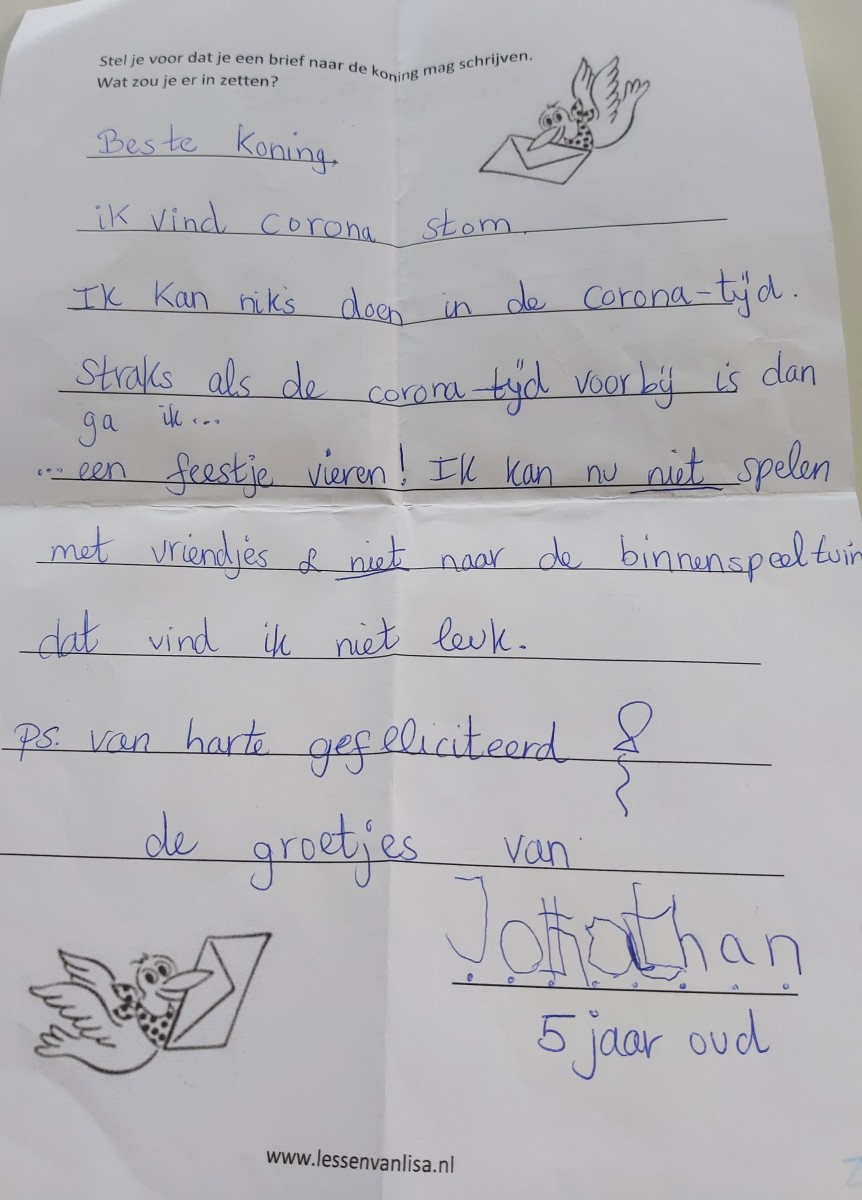 Stel je voor dat je een brief naar de koning mag schrijven.
Wat zou je er in zetten?
Beste Koning,
ik vind corona stom.
Ik kan niks doen in de corona-tijd.
Straks als de corona-tijd voorbij is dan
ga ik...
... een feestje vieren! Ik kan nu niet spelen
met vriendjes & niet naar de binnenspeeltuin
dat vind ik niet leuk.
PS. van harte gefeliciteerd
de groetjes van
Jonathan
5 jaar oud
www.lessenvanlisa.nl